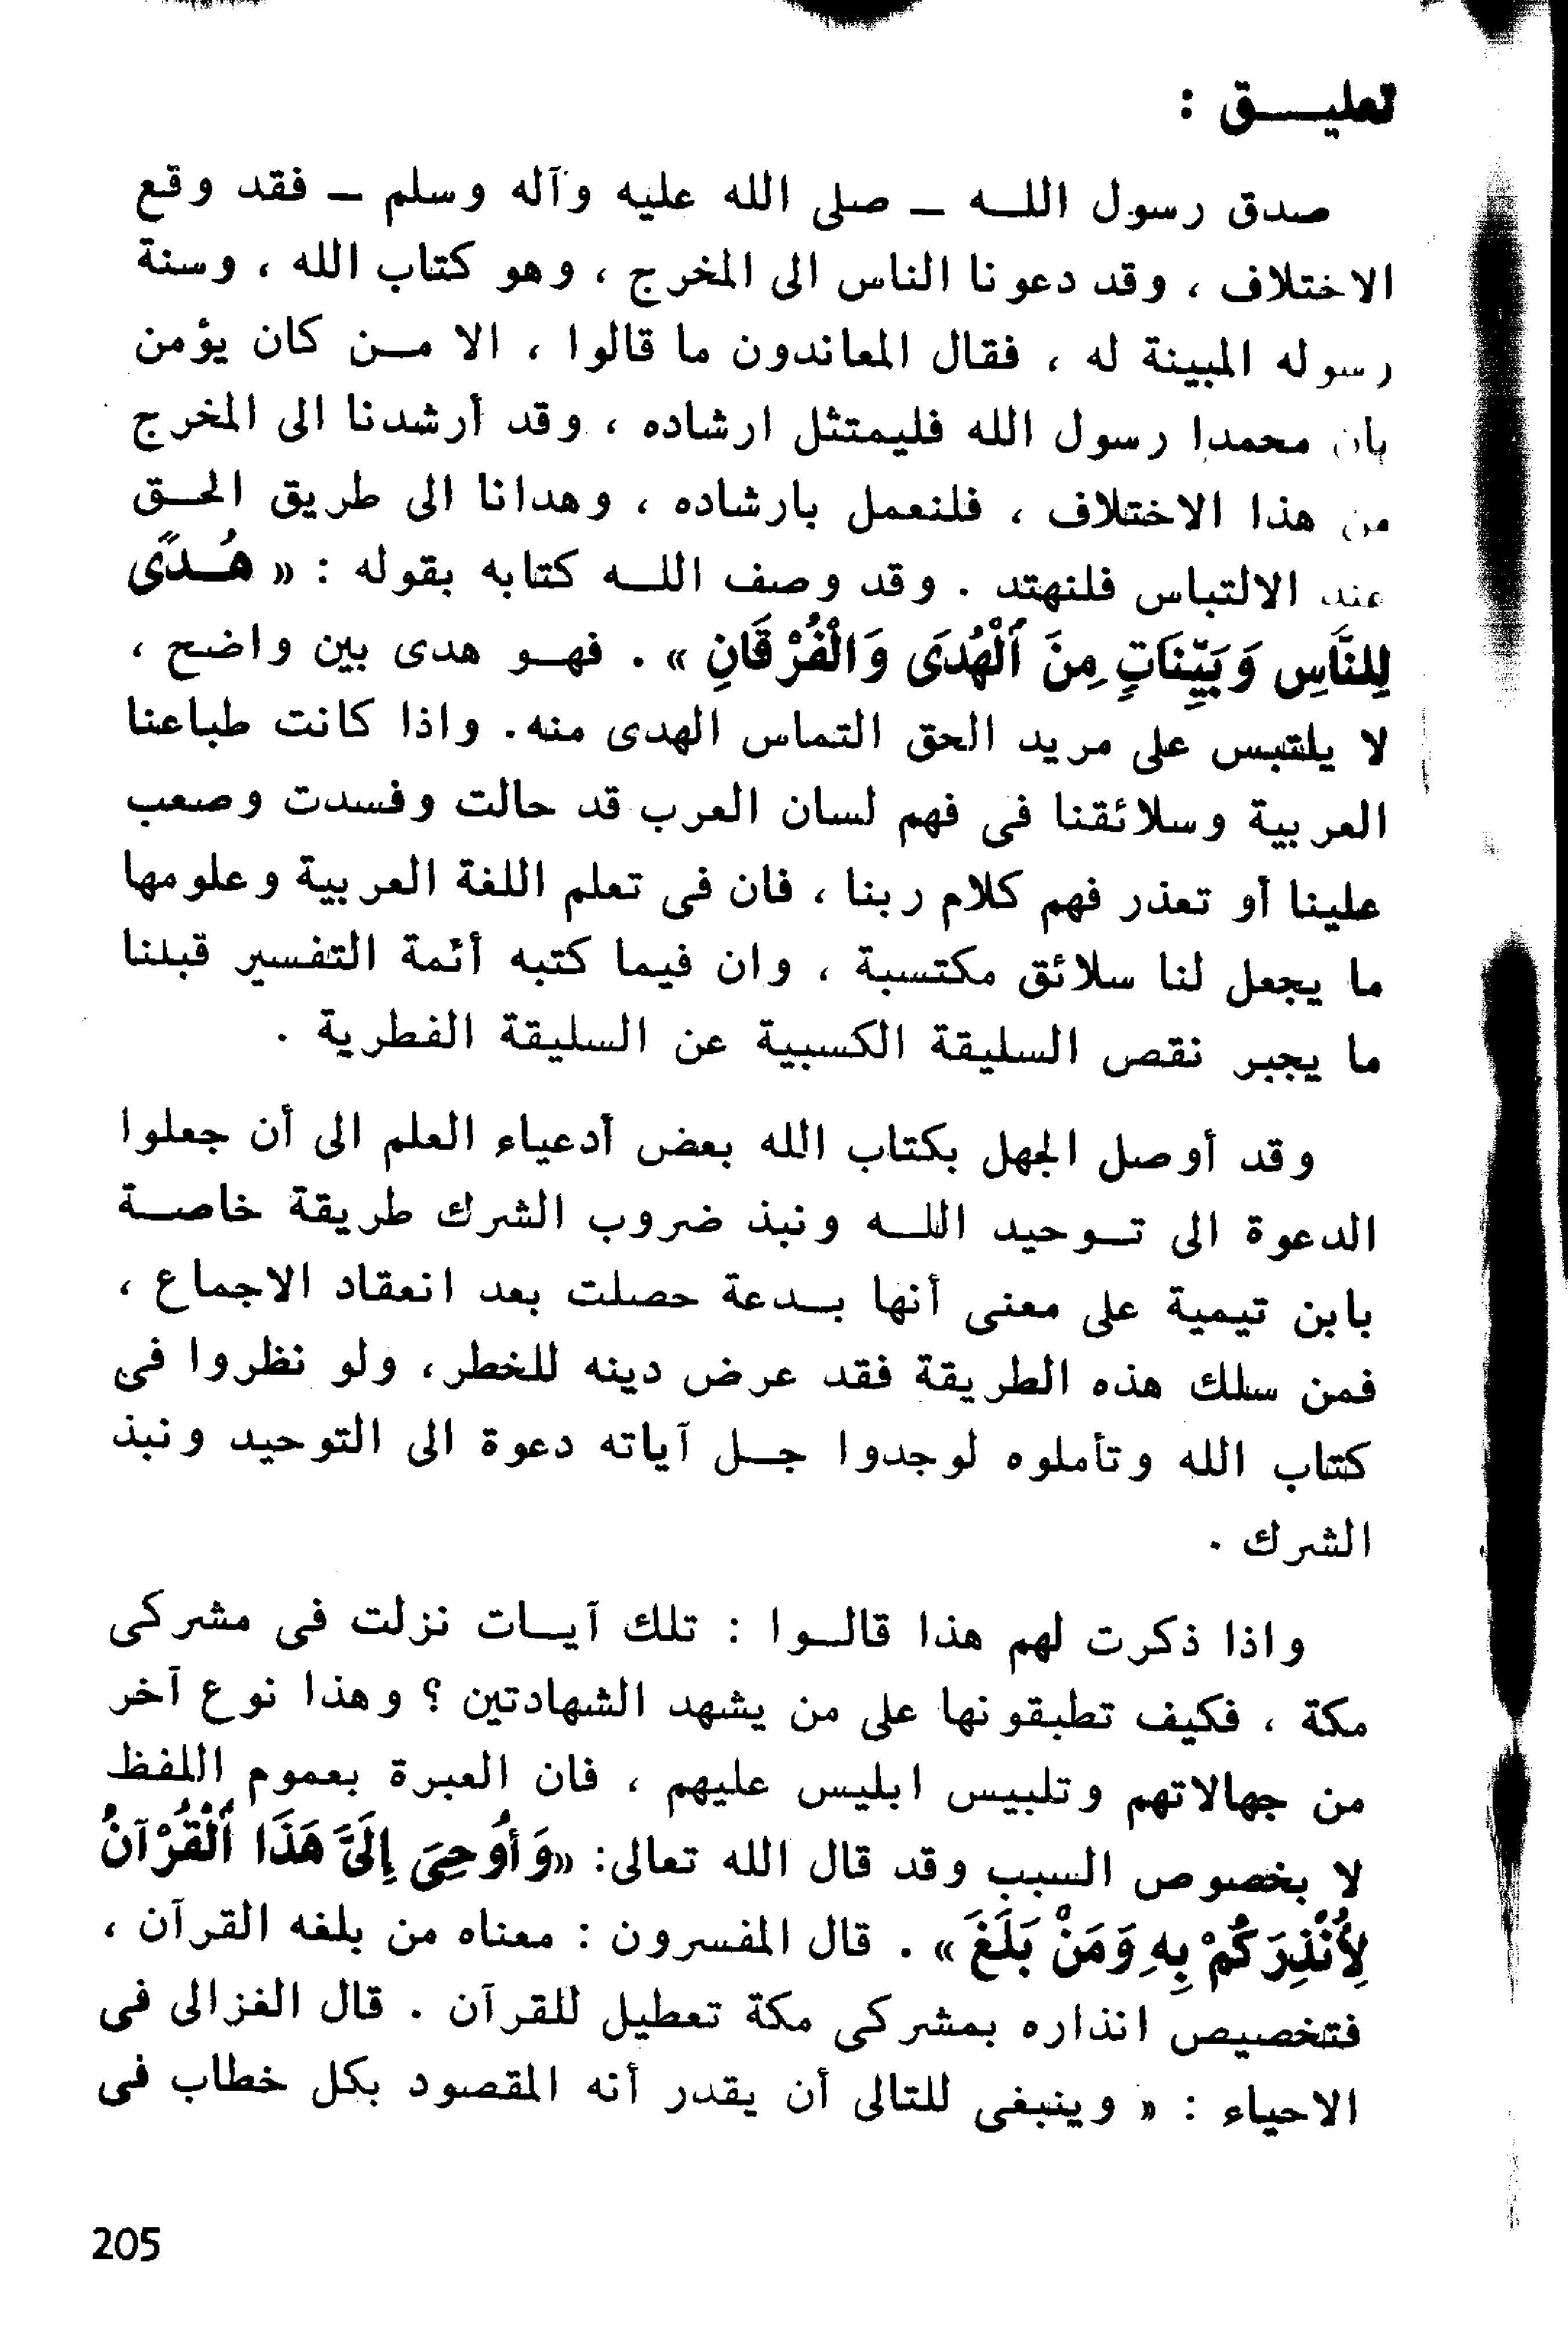 تعليـــق :
صدق رسول اللــه ــ صلى الله عليه وآله وسلم ــ فقد وقع
الاختلاف ، وقد دعونا الناس الى المخرج ، وهو كتاب الله ، وسنة
رسوله المبينة له ، فقال المعاندون ما قالوا ، الا مــن كان يؤمن
بان محمدا رسول الله فليمتثل ارشاده ، وقد أرشدنا الى المخرج
من هذا الاختلاف ، فلنعمل بارشاده ، وهدانا الى طريق الحــق
عند الالتباس فلنهتد . وقد وصف اللــه كتابه بقوله : « هُــدًى
لِلنَّاسِ وَبَيِّنَاتٍ مِنَ ٱلْهُدَى وَالْفُرْقَانِ » . فهــو هدى بين واضح ،
لا يلتبس على مريد الحق التماس الهدى منه. واذا كانت طباعنا
العربية وسلائقنا فى فهم لسان العرب قد حالت وفسدت وصعب
علينا أو تعذر فهم كلام ربنا ، فان فى تعلم اللغة العربية وعلومها
ما يجعل لنا سلائق مكتسبة ، وان فيما كتبه أئمة التفسير قبلنا
ما يجبر نقص السليقة الكسبية عن السليقة الفطرية .
وقد أوصل الجهل بكتاب الله بعض أدعياء العلم الى أن جعلوا
الدعوة الى تــوحيد اللــه ونبذ ضروب الشرك طريقة خاصــة
بابن تيمية على معنى أنها بــدعة حصلت بعد انعقاد الاجماع ،
فمن سلك هذه الطريقة فقد عرض دينه للخطر، ولو نظروا فى
كتاب الله وتأملوه لوجدوا جــل آياته دعوة الى التوحيد ونبذ
الشرك .
واذا ذكرت لهم هذا قالــوا : تلك آيــات نزلت فى مشركى
مكة ، فكيف تطبقونها على من يشهد الشهادتين ؟ وهذا نوع آخر
من جهالاتهم وتلبيس ابليس عليهم ، فان العبرة بعموم اللفظ
لا بخصوص السبب وقد قال الله تعالى: «وَأُوحِيَ إِلَيَّ هَذَا ٱلْقُرْآنُ
لِأُنْذِرَكُمْ بِهِ وَمَنْ بَلَغَ » . قال المفسرون : معناه من بلغه القرآن ،
فتخصيص انذاره بمشركى مكة تعطيل للقرآن . قال الغزالى فى
الاحياء : « وينبغى للتالى أن يقدر أنه المقصود بكل خطاب فى
205